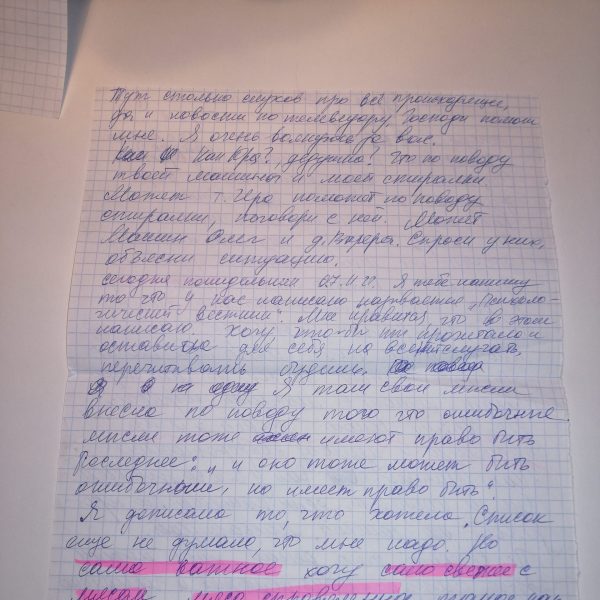 Тут столько слухов про всё происходящее,
да и новости по телевизору Господи помоги
мне. Я очень волнуюсь за вас.
Как Кря?, держитесь! Что по поводу
твоей машины и моей стиралки
Может т. Ира поможет по поводу
стиралки, поговори с ней. Может
Машин Олег и д. Валера. Спроси у них,
объясни ситуацию.
Сегодня понидельник 07.11 22. Я тебе напишу
то что у нас написано называется „Психоло-
гический вестник". Мне нравится что в этом
написано. Хочу что-бы ты прочитала и
оставила для себя на всякий случай,
перечитывать будешь.
Я там свои мысли
внесла по поводу того что ошибочные
мысли тоже имеют право быть
Последнее: „ и оно тоже может быть
ошибочным, но имеет право быть".
Я дописала то, что хотела. Список
еще не думала, что мне надо. Но
само важное хочу сало свежее с
мясом, мясо